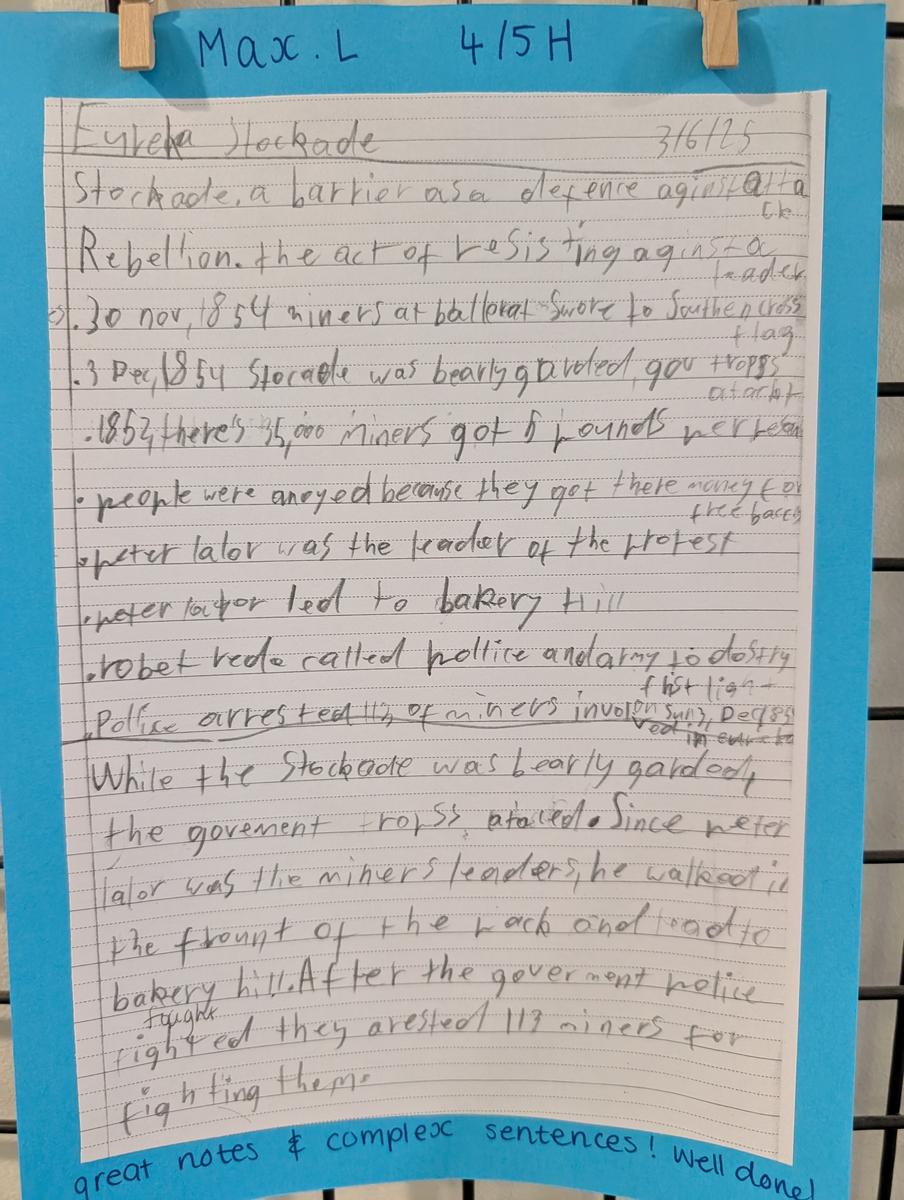 Max. L 4/5H
Eureka Stockade 3/6/25
Stockade. a barrier as a defence aginst atta
ck
Rebellion. the act of resisting aginst a
leader
.30 nov, 1854 miners at ballerat swore to Southen cross
flag
.3 Dec, 1854 Stocade was bearly garded, gov tropss
atackt
.1852, there's 35,000 miners got 5 pounds per
• people were anoyed because they got there money for
free
• peter lalor was the leader of the protest
.peter lalor led to bakery Hill
.robet rede called pollice and army to dostry
fhst ligh-
.Pollice arrested 113 of miners invol on sun 3, Dec
ved in
While the Stockade was bearly garded,
the goverment tropss ataced. Since peter
lalor was the miners leaders, he walked in
the frount of the pack and lead to
bakery hill. After the goverment police
fought
fighted they arested 113 miners for
fighting them.
great notes & complex sentences! Well done!